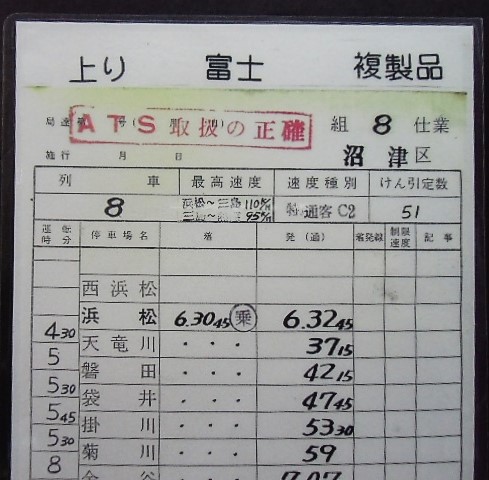 上り 富士 複製品
局達 号( )
ATS取扱の正確
組 8 仕業
施行 月 日
沼津区
列車 最高速度 速度種別 けん引定数
8 浜松~三島 110 通客C2 51
三島~ 95
運転時分 停車場名 着 発(通) 着発線 制限速度 記事
西浜松
浜松 6.30 45 乗 6.32 45
4 30
天竜川 ・・・ 37 15
5
磐田 ・・・ 42 15
5 30
袋井 ・・・ 47 45
5 45
掛川 ・・・ 53 30
5 30
菊川 ・・・ 59
8
金谷 ・・・ 7.07